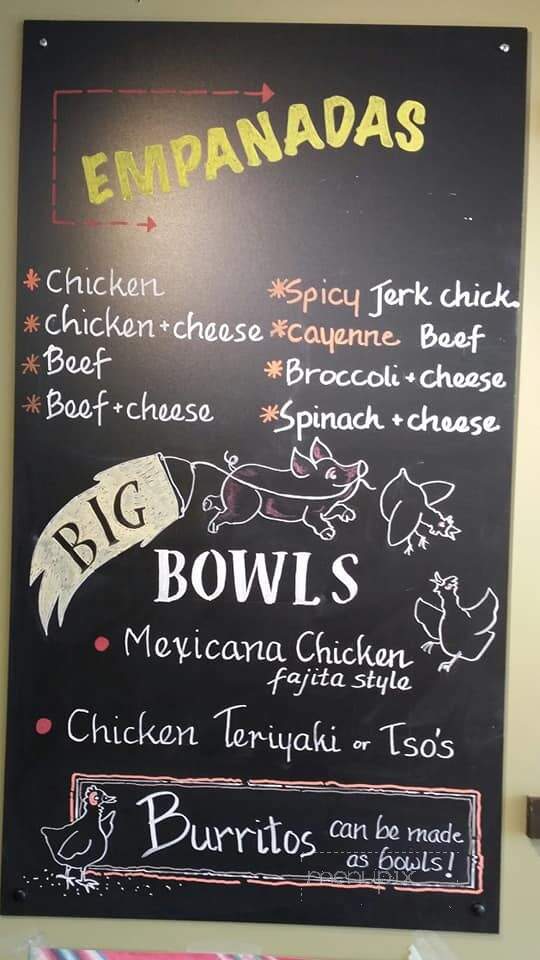 EMPANADAS
* Chicken
* chicken + cheese
* Beef
* Beef + cheese
* Spicy Jerk chick.
* cayenne Beef
* Broccoli + cheese
* Spinach + cheese
BIG
BOWLS
• Mexicana Chicken
fajita style
• Chicken Teriyaki or Tso's
Burritos can be made
as bowls!
menupix